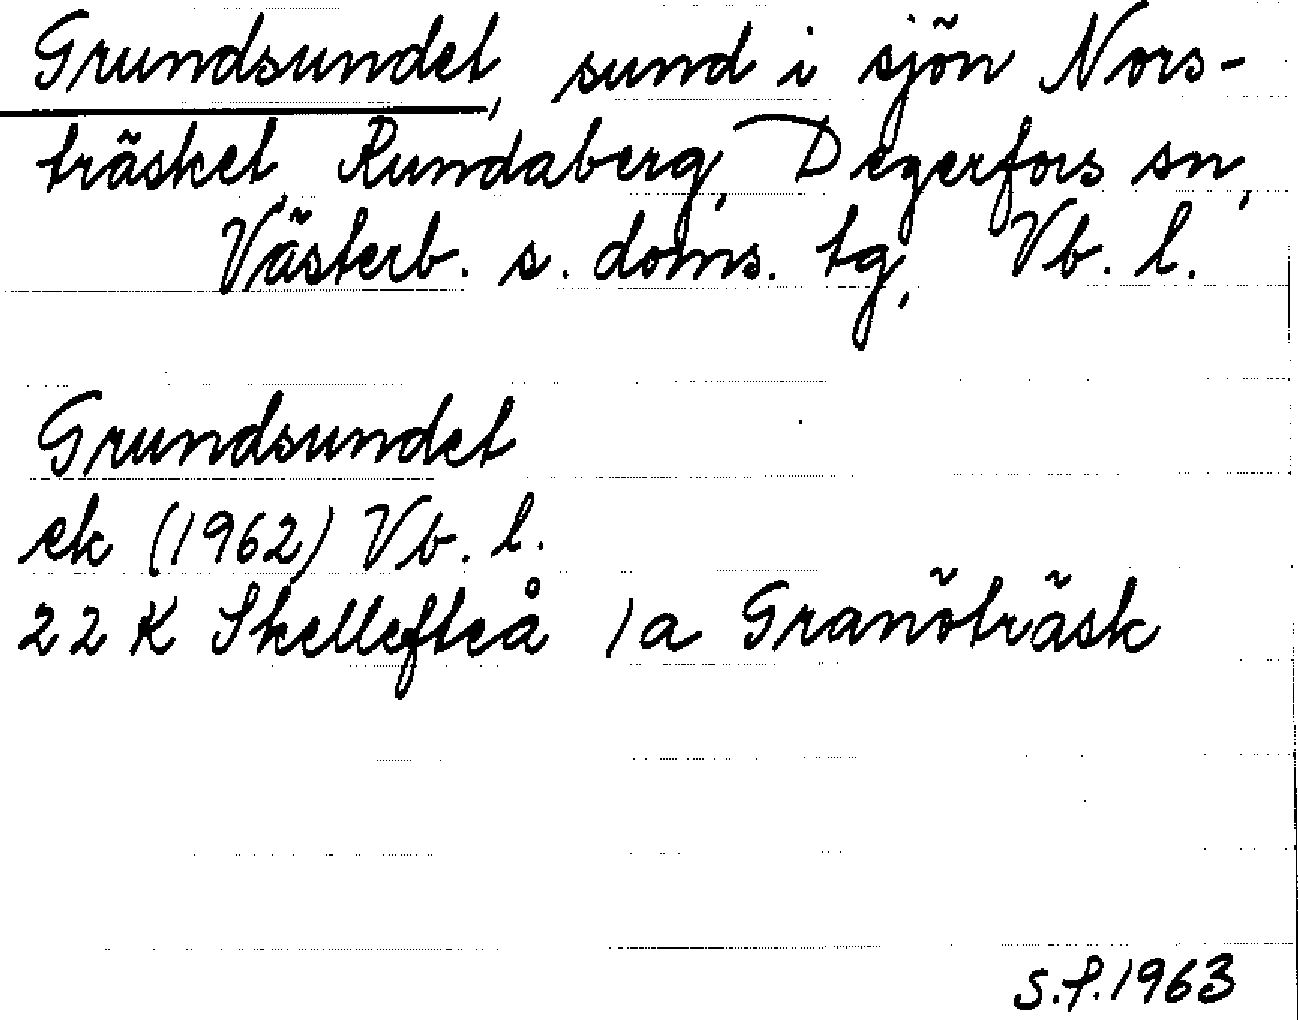 Grundsundet, sund i sjön Nors-
träsket, Rundaberg, Degerfors sn,
Västerb. s. doms. tg, Vb. l.
Grundsundet
ek (1962) Vb. l.
22 K Skellefteå 1a Granöträsk
S.f. 1963